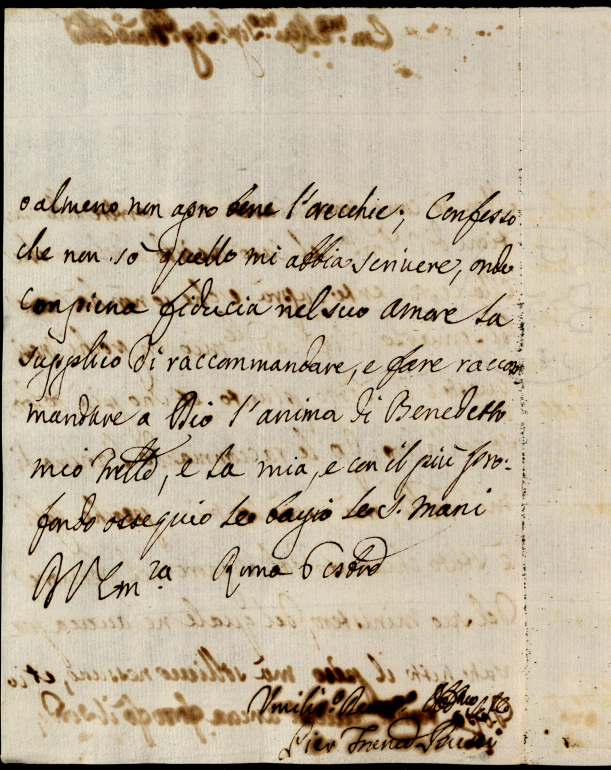 o almeno non apro bene l'orecchie; Confesso
che non sò quello mi abbia scriuere, onde
con piena fiducia nel suo amore La
supplico di raccommandare, e fare raccom
mandare a Dio l'anima di Benedetto
mio frêllo, e la mia, e con il più pro-
fondo ossequio Le bagio le S. mani
Roma 6
Vmiliss.o
Pier Franc.o